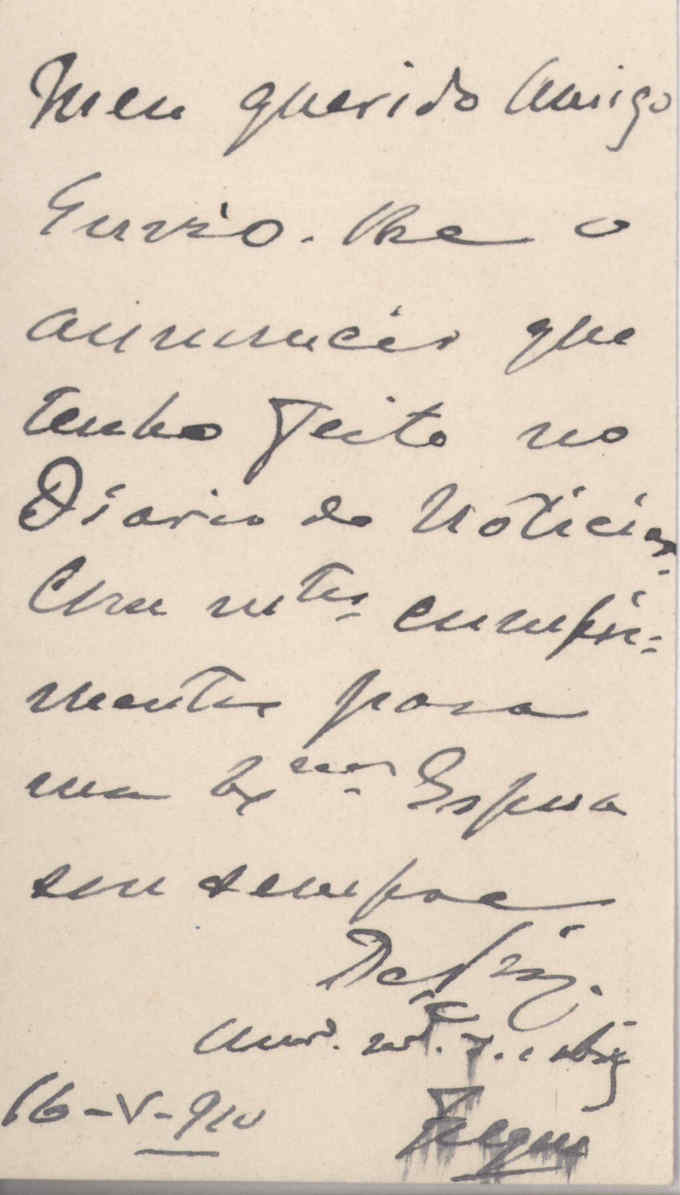 Meu querido Amigo
Envio-lhe o
annuncio que
tenho feito no
Diario de Noticias.
Com mtos cumpri-
mentos para
sua Exma Esposa
sou sempre
De
Amo.
16-V-910